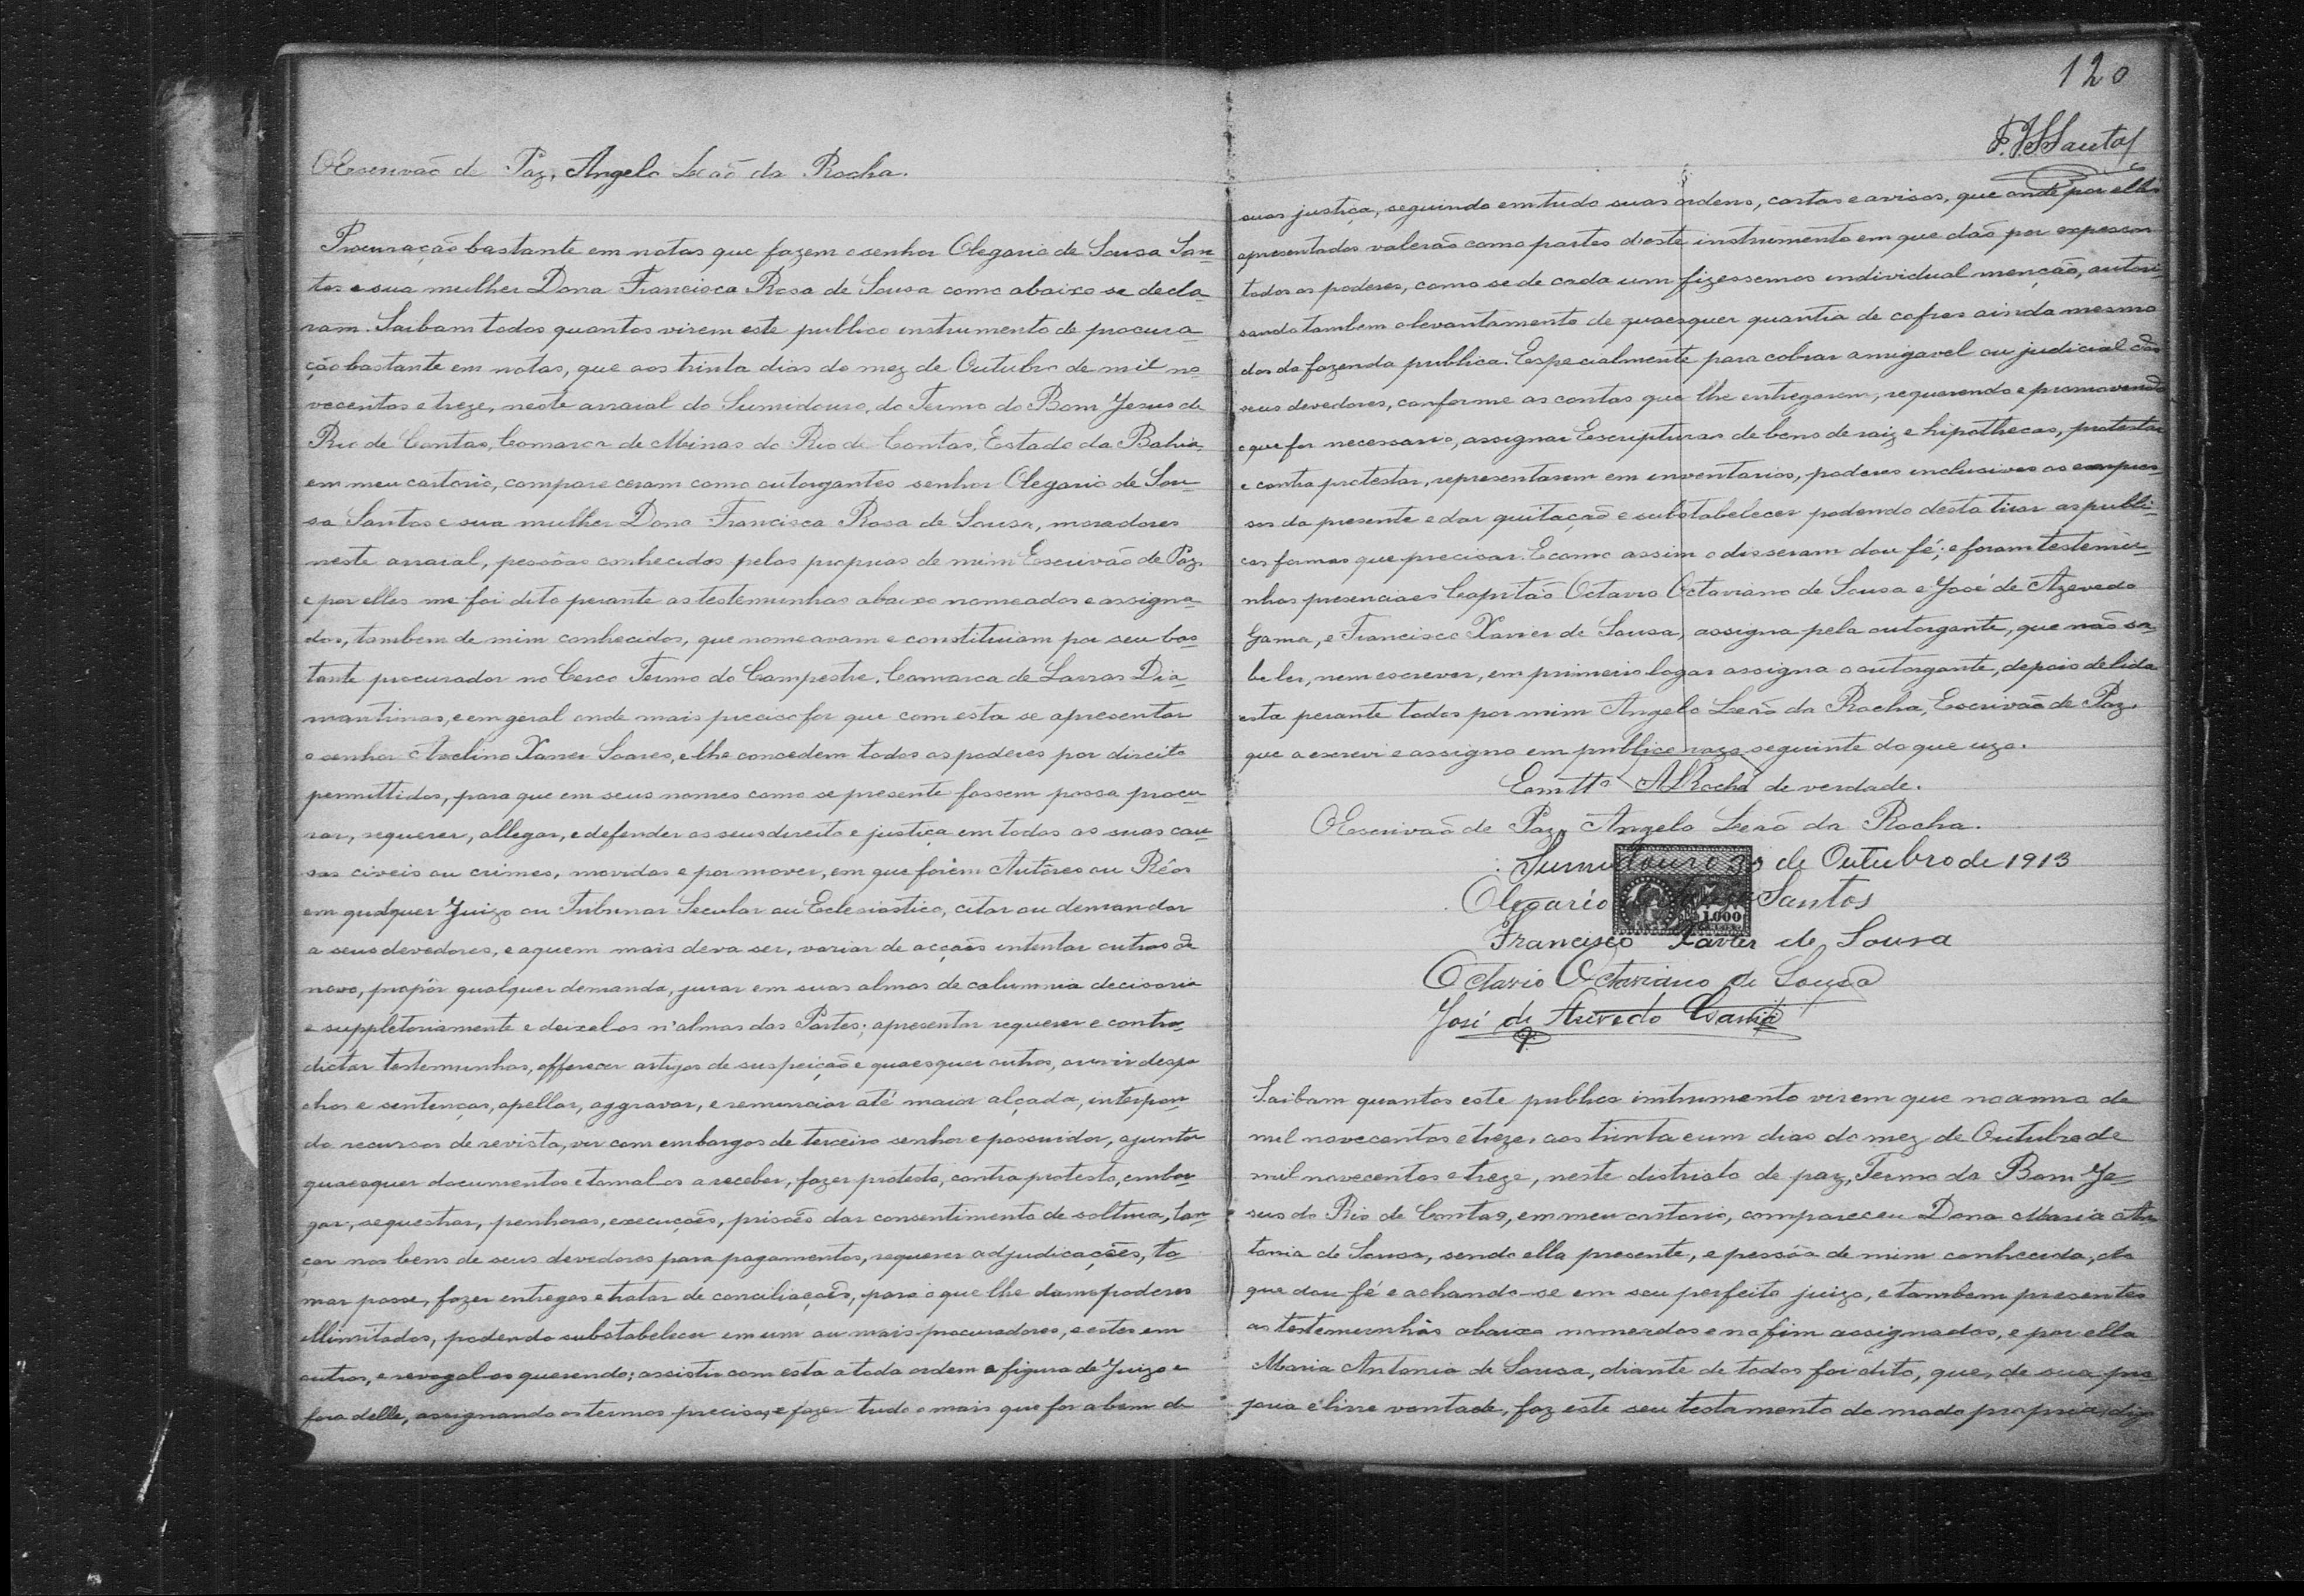 OEscrivão de Paz, Angelo Leão da Rocha.
Procuração bastante em notas que fazem o senhor Olegario de Sousa San-
tos e sua mulher Dona Francisca Rosa de Sousa como abaixo se decla-
ram. Saibam todos quantos virem este publico instrumento de procura-
ção bastante em notas, que aos trinta dias do mez de Outubro de mil no-
vecentos e treze, neste arraial do Sumidouro, do Termo do Bom Jesus do
Rio de Contas, Comarca de Minas do Rio de Contas, Estado da Bahia,
em meu cartorio, compareceram como outorgantes senhor Olegario de Sou-
sa Santos e sua mulher Dona Francisca Rosa de Sousa, moradores
neste arraial, pessôas conhecidas pelas proprias de mim Escrivão de Paz,
e por elles me foi dito perante as testemunhas abaixo nomeadas e assigna-
das, tambem de mim conhecidos, que nomeavam e constituiam por seu bas-
tante procurador no Cerco Termo do Campestre, Comarca de Lavras Dia-
mantinas, e em geral onde mais preciso for que com esta se apresentar
o senhor Avelino Xavier Soares, e lhe concedem todos os poderes por direito
permittidos, para que em seus nomes como se presente fossem possa procu-
rar, requerer, allegar, e defender os seus direito e justiça em todas as suas cau-
sas civeis ou crimes, movidas e por mover, em que forem Autôres ou Réos
em qualquer Juizo ou Tribunar Secular ou Eclesiastico, citar ou demandar
a seus devedores, e a quem mais deva ser, variar de acções intentar outras de
novo, propôr qualquer demanda, jurar em suas almas de calumnia decisoria
e suppletoriamente e deixal-os n'almas das Partes; apresentar requerer e contra-
dictar testemunhas, offerecer artigos de suspeição e quaesquer outros, ouvir despa-
chos e sentenças, apellar, aggravar, e renunciar até maior alçada, interpon-
do recursos de revista, vir com embargos de terceiro senhor e possuidor, ajuntar
quaesquer documentos e tomal-os a receber, fazer protesto, contra protesto, embar-
gar, sequestrar, penhoras, execuções, prisões dar consentimento de soltura, lan-
çar nos bens de seus devedores para pagamentos, requerer adjudicações, to-
mar posse, fazer entregas e tratar de conciliações, para o que lhe damos poderes
illimitados, podendo substabelecer em um ou mais procuradores, e estes em
outros, e revogal-os querendo; assistir com esta a toda ordem e figura de Juizo e
fora delle, assignando os termos precisos, e fazer tudo o mais que for a bem de
120
suas justiça, seguindo em tudo suas ordens, cartas e avisos, que onde por elles
apresentados valerão como partes deste instrumento em que dão por expressos
todos os poderes, como se de cada um fizessemos individual menção, autori-
sando tambem o levantamento de quaesquer quantia de cofres ainda mesmo
dos da fazenda publica. Especialmente para cobrar amigavel ou judicial dos
seus devedores, conforme as contas que lhe entregarem, requerendo e promovendo
o que for necessario, assignar Escripturas de bens de raiz e hipothecas, protestar
e contra protestar, representarem em inventarios, poderes inclusives os expres-
sos da presente e dar quitação e substabelecer podendo desta tirar as publi-
cas formas que precisar. E como assim o disseram dou fé; e foram testemu-
nhas presenciaes Capitão Octavio Octaviano de Sousa e José de Azevedo
Gama, e Francisco Xavier de Sousa, assigna pela outorgante, que não sa-
be ler, nem escrever, em primeiro logar assigna o outorgante, depois de lida
esta perante todos por mim Angelo Leão da Rocha, Escrivão de Paz,
que a escrevi e assigno em publico razo seguinte do que uzo.
Em tto ALRocha de verdade.
OEscrivão de Paz, Angelo Leão da Rocha.
Sumidouro 30 de Outubro de 1913
1.000
Olegario de Sousa Santos
Francisco Xavier de Sousa
Octavio Octaviano de Sousa
José de Azevedo Gama
Saibam quantos este publico instrumento virem que no anno de
mil novecentos e treze, aos trinta e um dias do mez de Outubro de
mil novecentos e treze, neste districto de paz, Termo do Bom Je-
sus do Rio de Contas, em meu cartorio, compareceu Dona Maria An-
tonia de Sousa, sendo ella presente, e pessôa de mim conhecida, do
que dou fé e achando-se em seu perfeito juizo, e tambem presentes
as testemunhas abaixo nomerdas e no fim assignados, e por ella
Maria Antonia de Sousa, diante de todos foi dito, que, de sua pro-
pria e livre vontade, faz este seu testamento do modo propria, digo